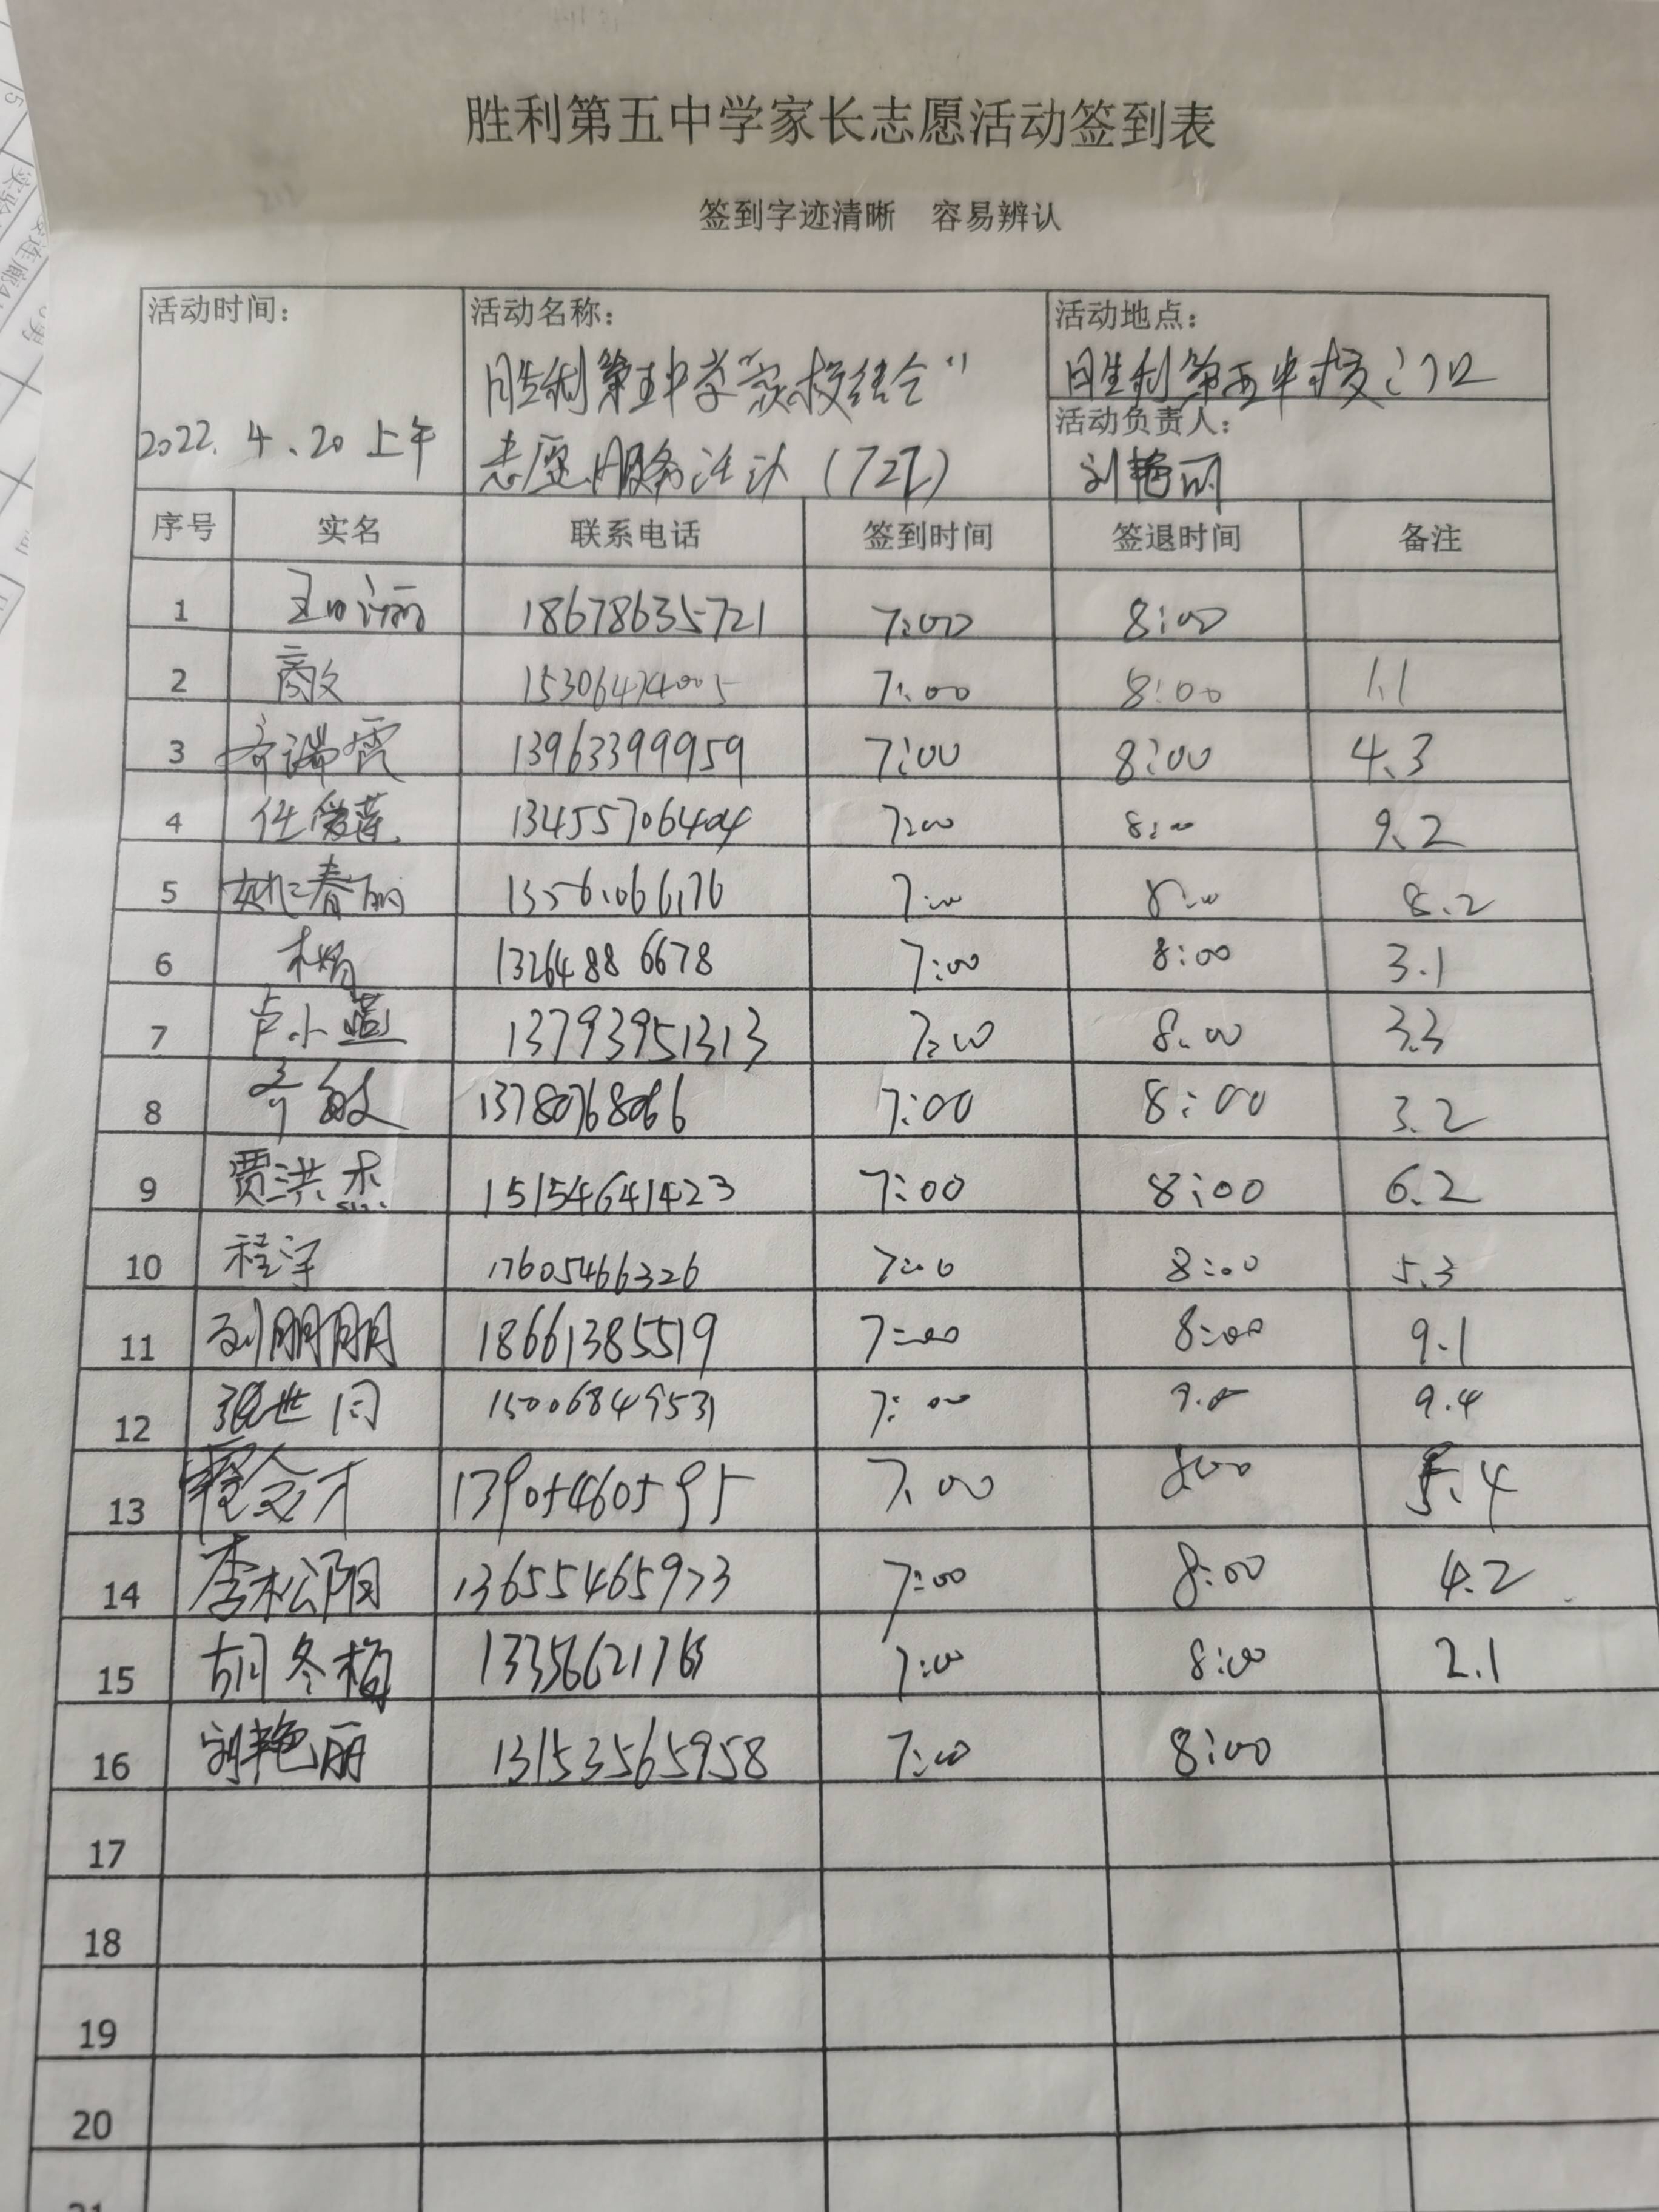 胜利第五中学家长志愿活动签到表
签到字迹清晰 容易辨认
活动时间： 活动名称： 活动地点：
胜利第五中学"家校结合" 胜利第五中校门口
活动负责人：
2022.4.20上午 志愿服务活动（7班） 刘艳丽
序号 实名 联系电话 签到时间 签退时间 备注
1 18678635721 7:00 8:00
2 7:00 8:00 1.1
3 齐瑞霞 13963399959 7:00 8:00 4.3
4 任俊莲 13455706404 7:00 8:00 9.2
5 姚春丽 13561066176 7:00 8:00 8.2
6 13264886678 7:00 8:00 3.1
7 卢小蓝 13793951313 7:00 8.00 3.3
8 齐敏 13780768066 7:00 8:00 3.2
9 贾洪杰 15154641423 7:00 8:00 6.2
10 程宇 17605466326 7:00 8:00 5.3
11 刘朋朋 18661385519 7:00 8:00 9.1
12 张世同 15006849531 7:00 9.4
13 13905460595 7:00 8:00 5.4
14 李松阳 13655465973 7:00 8:00 4.2
15 胡冬梅 7:00 8:00 2.1
16 刘艳丽 13153565958 7:00 8:00
17
18
19
20
21